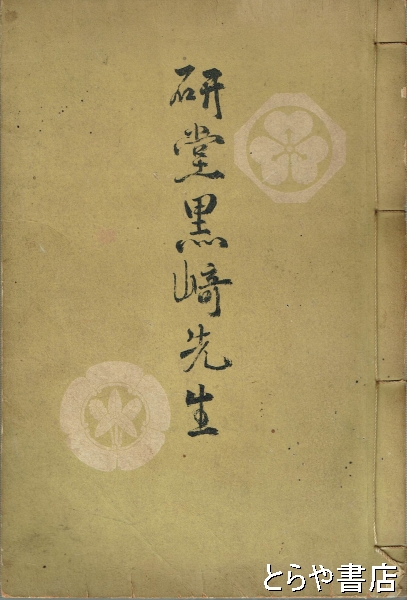 研堂黒崎先生
とらや書店